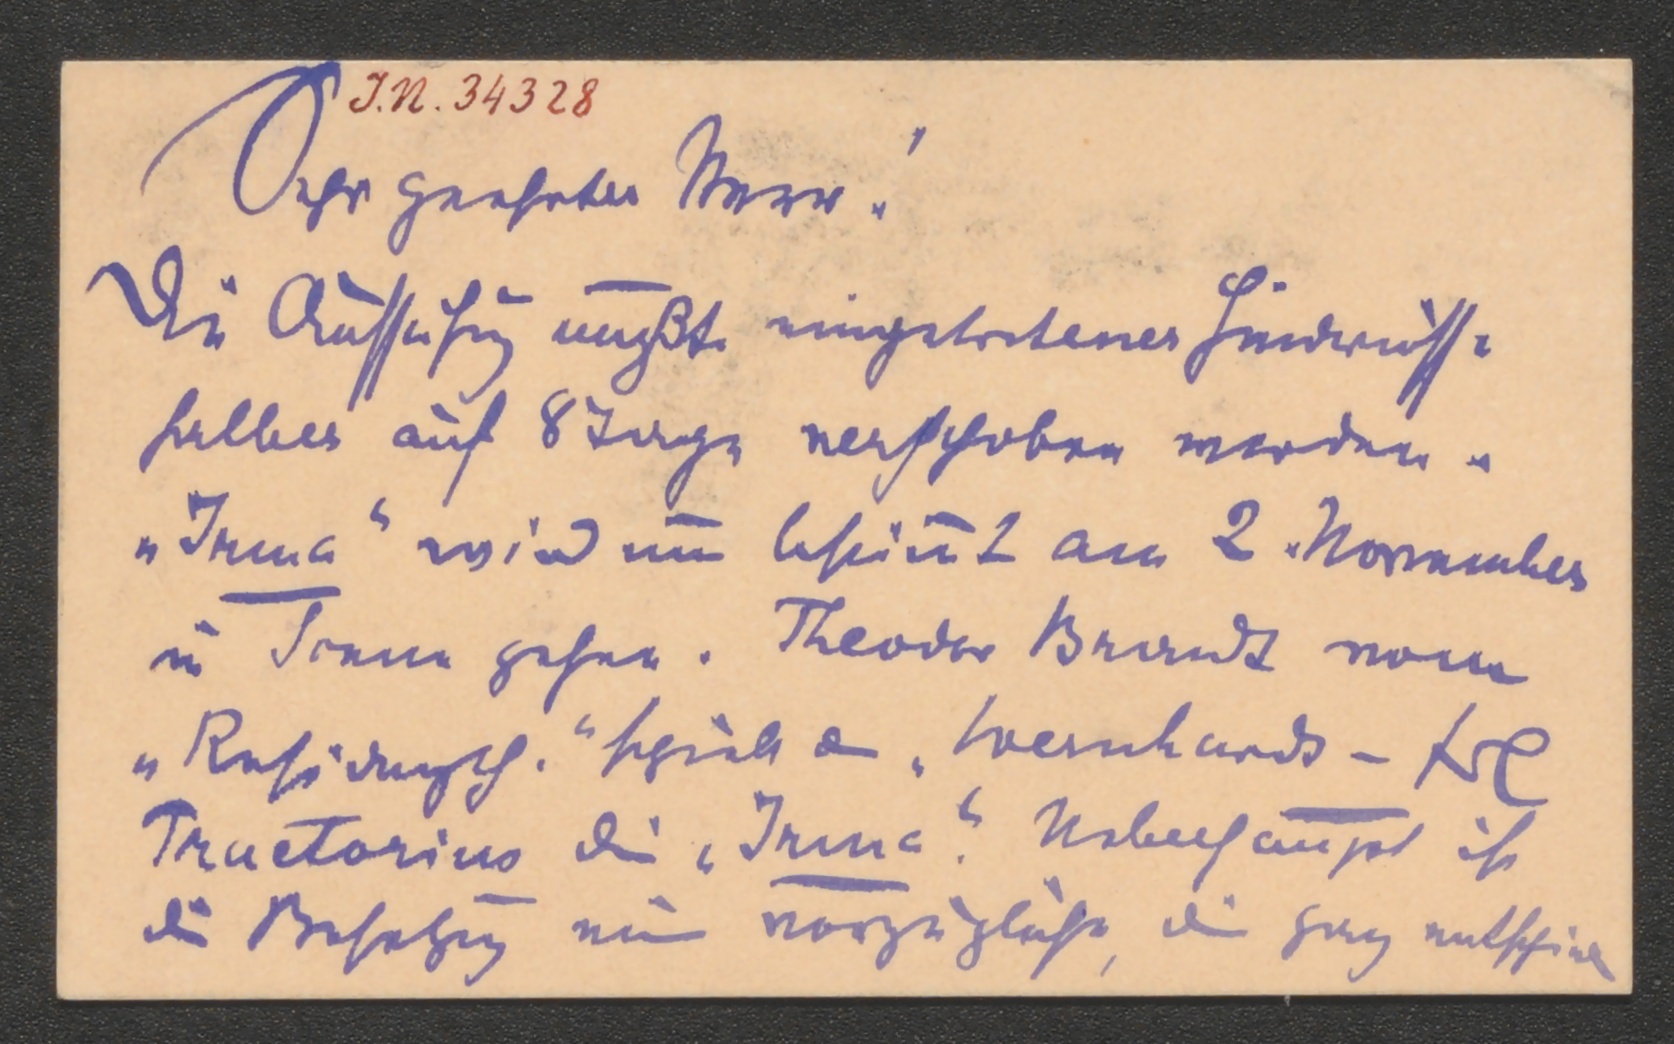 J.N. 34328
Sehr geehrter Herr!
Die Aufführg mußte eingetretener Hindernisse
halber auf 8 Tage verschoben werden.
„Irma“ wird nun bestimmt am 2. November
in Scene gehen. Theodor Brandt vom
„Residenzth.“ spielt den „Wernhard“ – Frl
Praetorius die „Irma“. Ueberhaupt ist
die Besetzg eine vorzügliche, die ganz entschieden